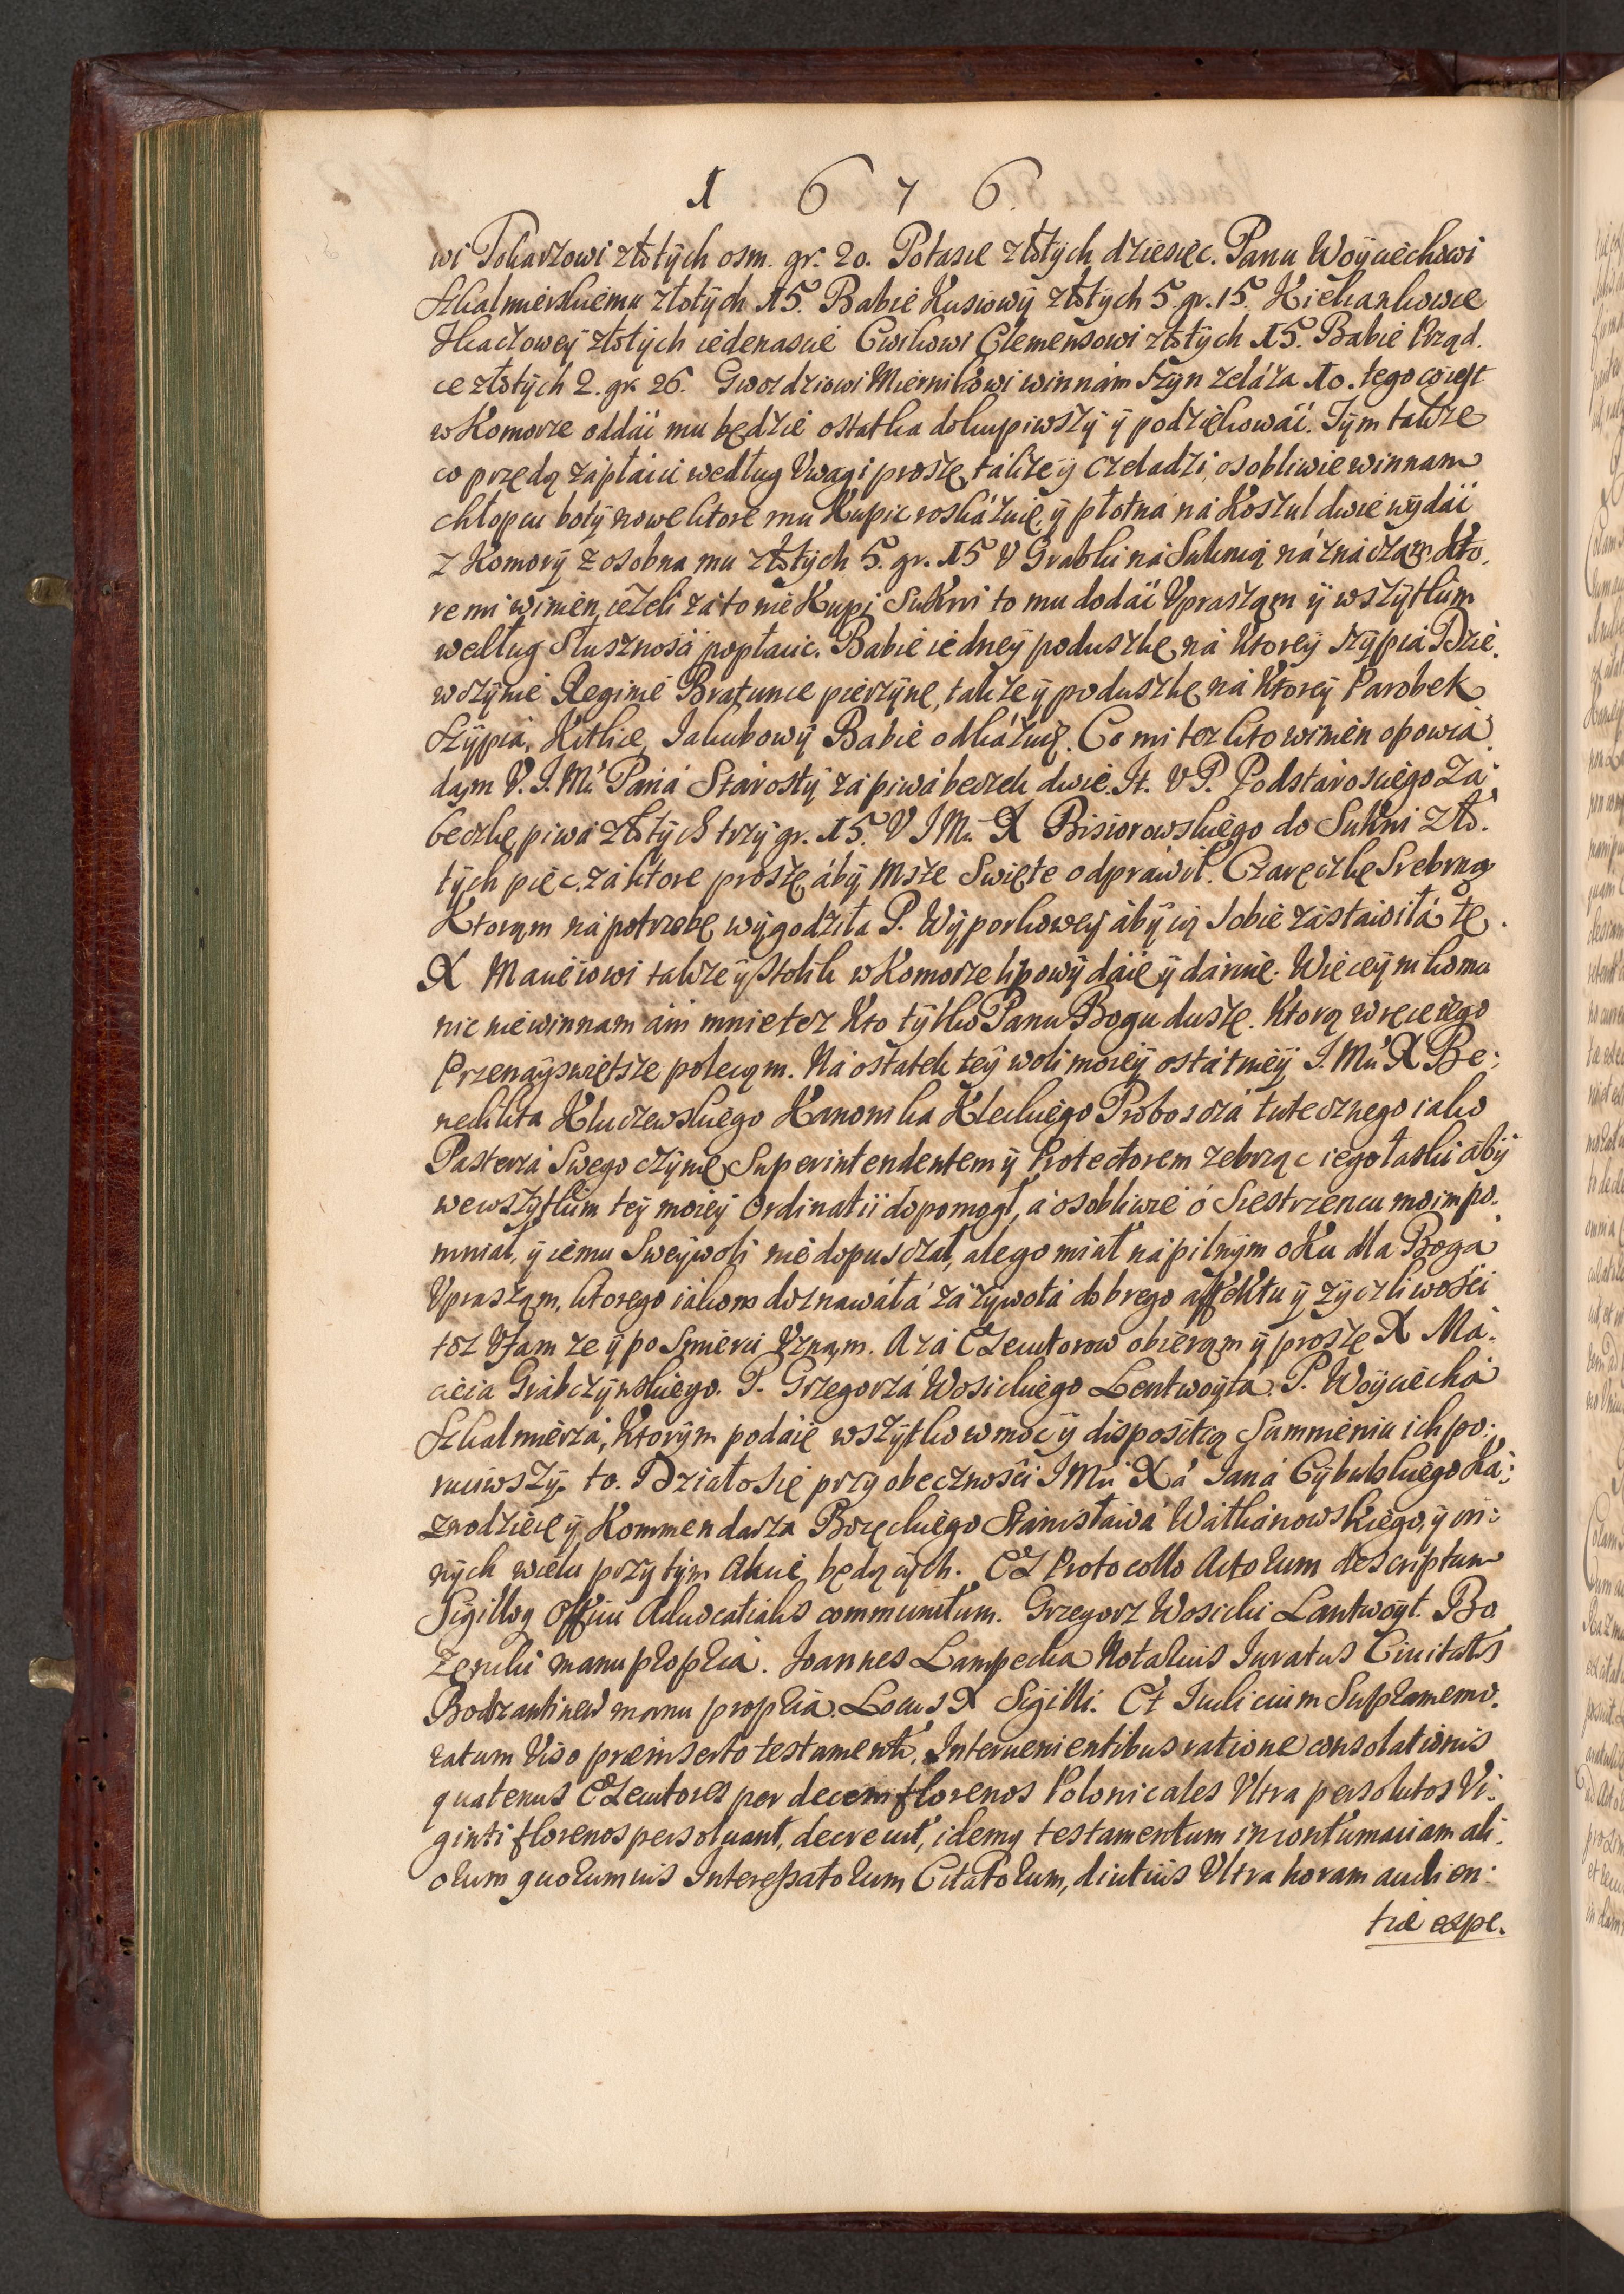 1 6 7 6.
wi Tokarzowi złotych osm. gr. 20. Potasie złotych dziesięc. Panu Woyciechowi
Skalmierskiemu złotych 15. Babie Kusiowy złotych 5. gr. 15. Kiekankowie
Tkaczowey złotych iedenascie Cwikowi Clemensowi złotych 15. Babie Prząd.
ce złotych 2. gr. 26. Gwozdziowi Miernikowi winnam szyn zelaza 10. tego co iest
w Komorze oddać mu będzie ostatka dokupiwszy ÿ podziękować. Tym takze
co przędą zapłacić według Vwagi proszę, takze ÿ czeladzi, osobliwie winnam
chłopcu boty nowe ktore mu Kupić roskazuię, ÿ płotna na Koszul dwie wydać
z Komory z osobna mu złotych 5. gr. 15 V Grabki na Suknią naznaczam. Kto.
re mi winien, iezeli za to nie Kupi Sukni to mu dodać Vpraszam ÿ wszytkim
według Słusznosci popłacic. Babie iedney poduszkę na ktorey sypia Dzie.
wczynie Reginie Bratunce pierzynę, takze ÿ poduszkę na Ktorey Parobek
sypia, Kitlicę Jakubowy Babie odkazuię. Co mi tez kto winien opowia.
dam V. J. Mci Pana Starosty za piwa beczek dwie. It. V P. Podstaroscięgo Za
beczkę piwa złotych trzy gr. 15. V J Mci X Bisiorowskiego do Sukni zło.
tych pięc. za ktore proszę aby Msze Swięte odprawił. Czareczkę Srebrną
Ktorąm na potrzebę wygodziła P. Wyporkowey aby ią Sobie zastawiła tę
X Macieiowi takze ÿ stolik w Komorze lipowy daię ÿ daruię. Więcey nikomu
nic nie winnam ani mnie tez Kto tylko Panu Bogu duszę. Ktorą w ręce iego
Przenayswiętsze polecam. Na ostatek tey woli moiey ostatniey J. Mci X Be:
nedikta Kluczewskiego Kanonika Kleckiego Proboscza tutecznego iako
Pasterza Swego czynię Superintendentem ÿ Protectorem zebrząc iego łaski aby
we wszytkim tey moiey Ordinatii dopomogł, a osobliwie o Siestrzencu moim po.
mniał, ÿ iemu Swey woli nie dopusczał, ale go miał na pilnym oKu dla Boga
Vpraszam, ktorego iakom doznawała za zywota dobrego affektu ÿ zyczliwosci
toz Vfam ze ÿ po Smierci Vznam. A za Exekutorow obieram ÿ proszę X Ma.
cieia Grabczynskiego. P. Grzegorza Wosickiego Lentwoyta. P. Woyciecha
Skalmierza, Ktorym podaię wszytko w moc ÿ disposition Summieniu ich po:
ruciwszy to. Działo się przy obecznosci J Mci Xa Jana Cybulskiego Ka:
znodzieię ÿ Kommendarza Bozęckiego Stanisława Watkanowskiego, ÿ in:
nych wielu przy tym Akcie będących. Ex Protocollo Actorum descriptum
Sigilloq Officii Advocatialis communitum. Grzegorz Wosicki Lantwoyt. Bo
zencki manu propria. Joannes Lampecka Notarius Juratus Civitatis
Bodzantinen manu propria. Locus X Sigilli. Et Iudicium Supramemo.
ratum Viso præinserto testamento, Intervenientibus ratione consolationis
quatenus Executores per decem florenos Polonicales Vltra persolutos Vi:
ginti florenos persolvant, decrevit, idemq testamentum in contumaciam ali
orum quorumvis Interessatorum Citatorum, diutius Vltra horam audien:
tiæ expe.